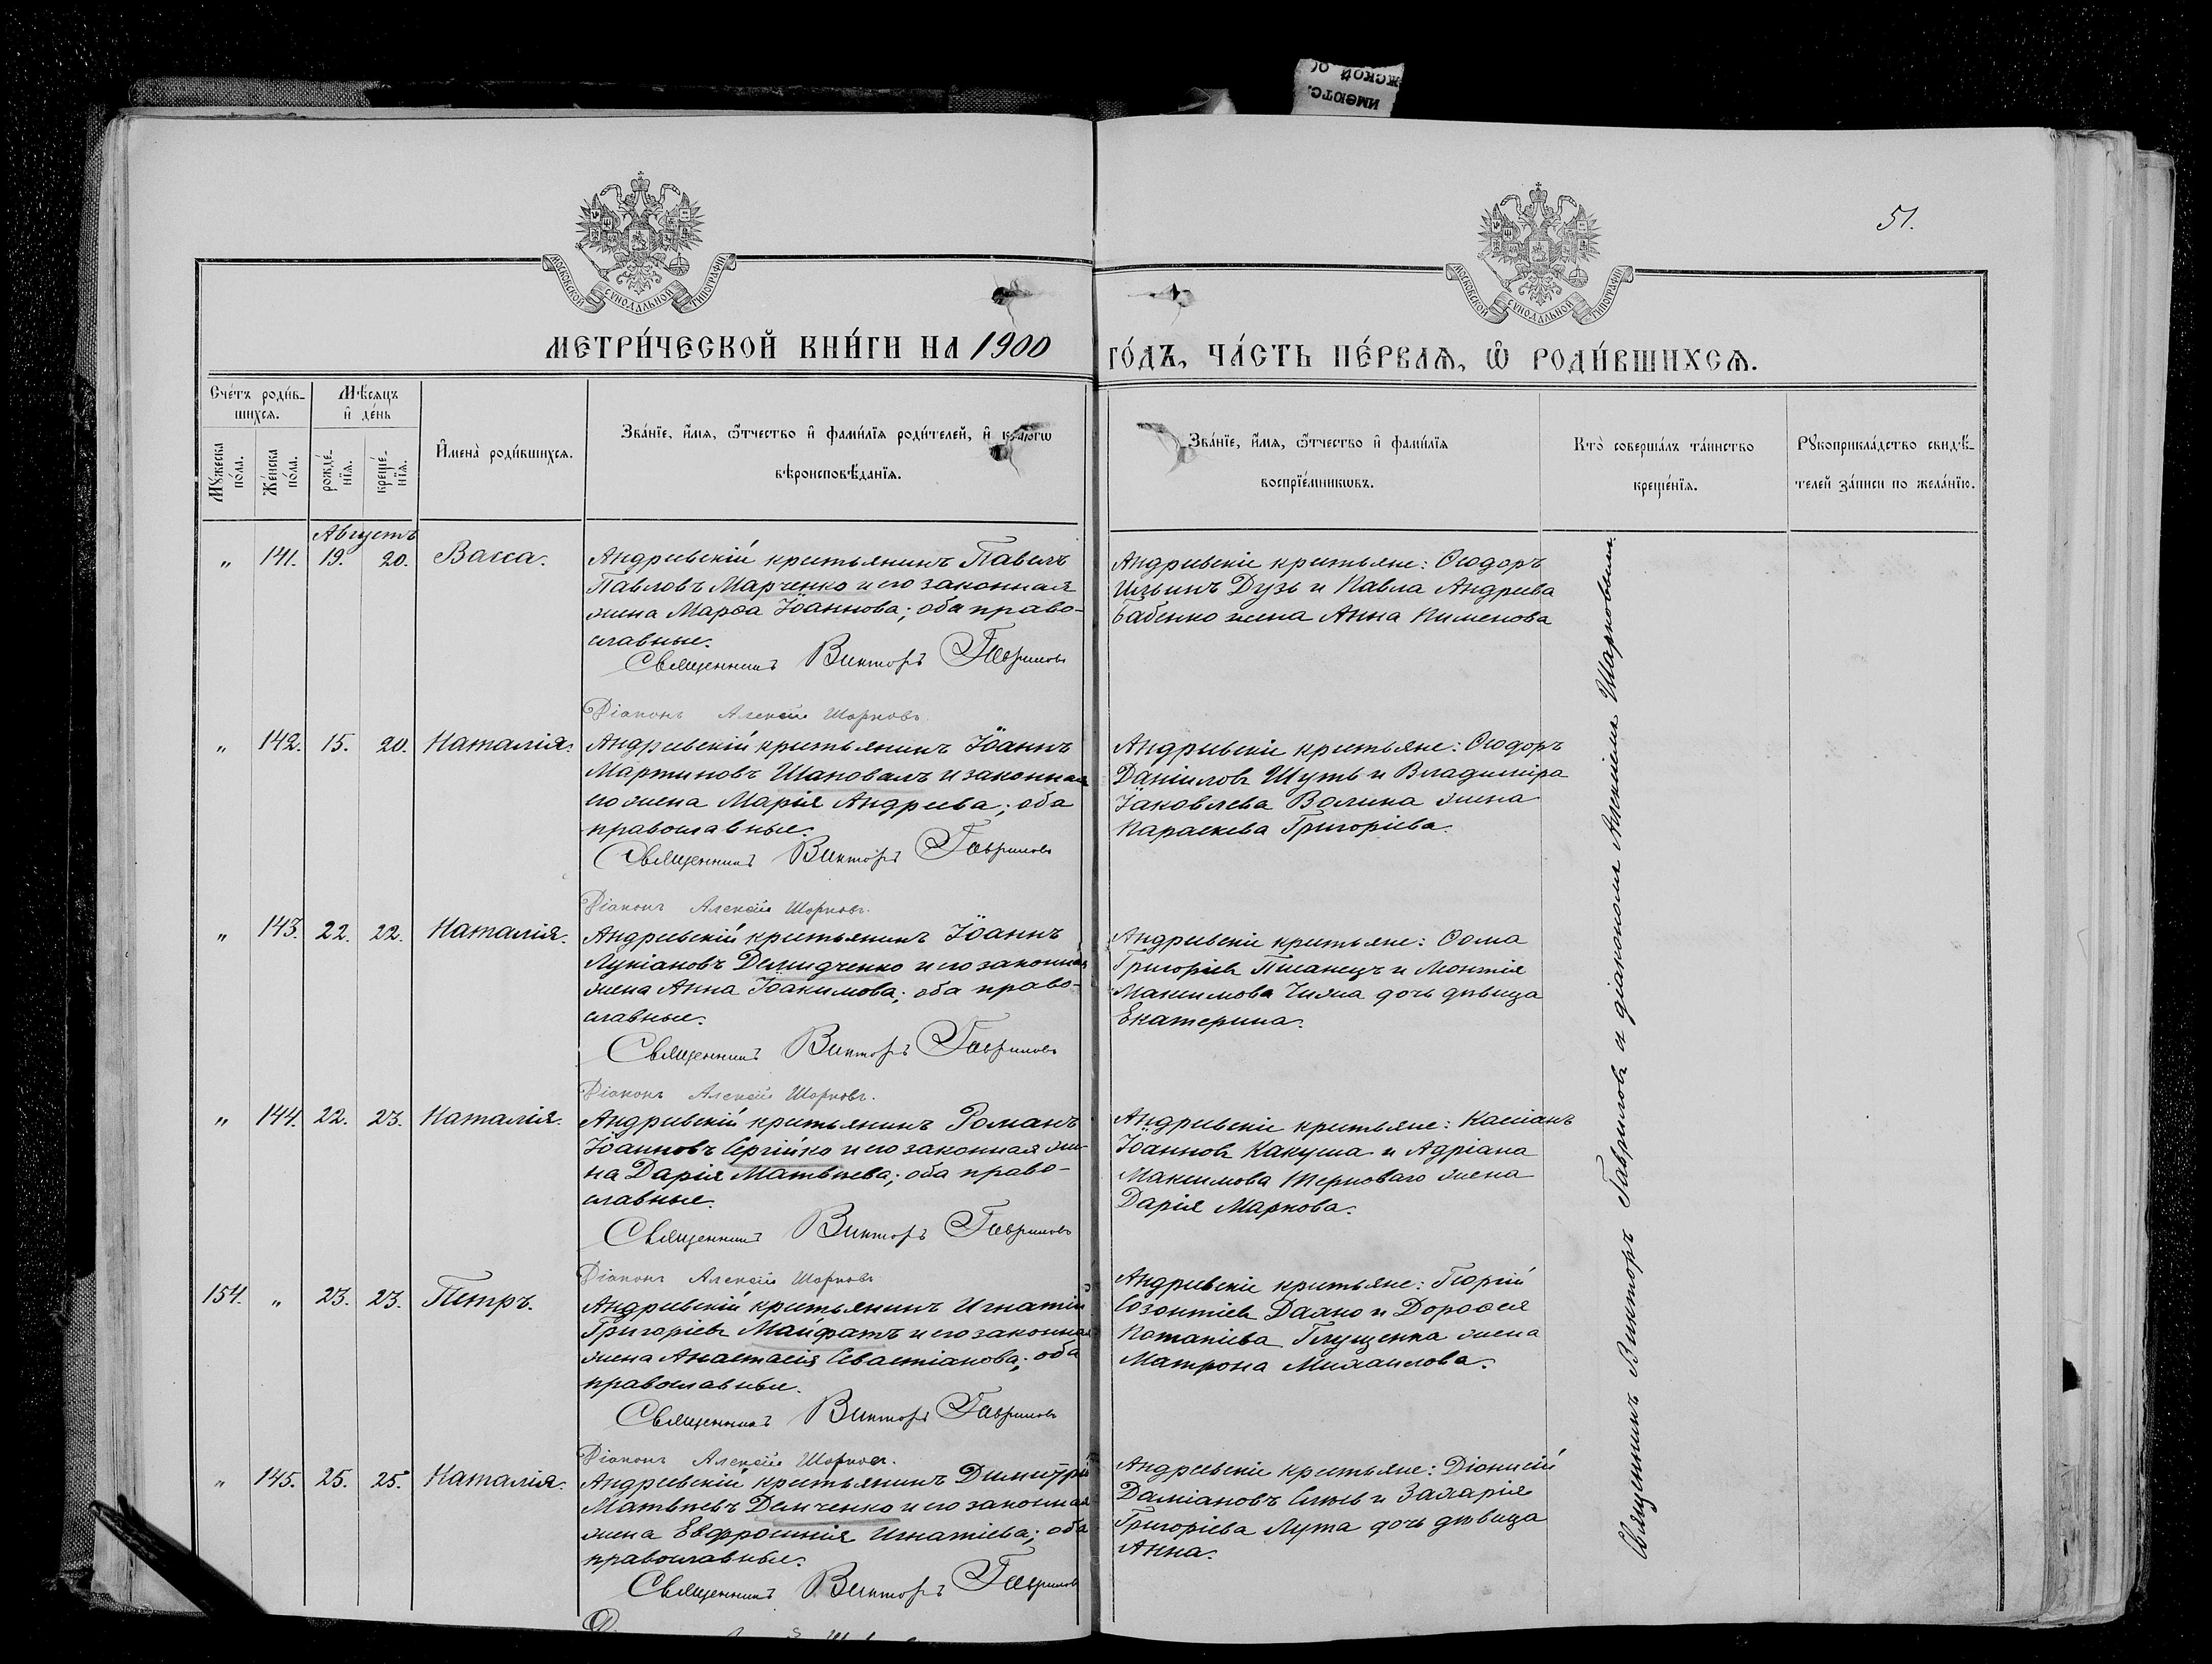 51.
МОСКОВСКОЙ СУНОДАЛЬНОЙ ТИПОГРАФІИ
МОСКОВСКОЙ СУНОДАЛЬНОЙ ТИПОГРАФІИ
МЕТРИ́ЧЕСКОЙ КНИ́ГИ НА 1900 ГО́ДЪ, ЧА́СТЬ ПЕ́РВАѦ, Ѡ РОДИ́ВШИХСѦ.
Сче́тъ роди́в-
шихсѧ.
Мꙋ́жеска
по́ла.
Же́нска
по́ла.
Мѣ́сѧцъ
и҆ де́нь
рожде́-
нїѧ.
креще́-
нїѧ.
И҆мена̀ роди́вшихсѧ.
Зва́нїе, и҆́мѧ, ѻ҆́тчество и҆ фами́лїѧ роди́телей, и҆ како́гѡ
вѣроисповѣ́данїѧ.
Зва́нїе, и҆́мѧ, ѻ҆́тчество и҆ фами́лїѧ
воспрїе́мникѡвъ.
Кто̀ соверша́лъ та́инство
креще́нїѧ.
Рꙋкоприкла́дство свидѣ́-
телей за́писи по жела́нїю.
Августъ
„ 141. 19. 20. Васса.
Андреевскій крестьянинъ Павелъ
Павловъ Марченко и его законная
жена Марѳа Іоаннова; оба право-
славные.
Священникъ Викторъ Гавриловъ
Діаконъ Алексѣй Шарковъ.
Андреевскіе крестьяне: Ѳеодоръ
Ильинъ Дузь и Павла Андреева
Бабенко жена Анна Пименова
„ 142. 15. 20. Наталія.
Андреевскій крестьянинъ Іоаннъ
Мартиновъ Шаповалъ и законная
его жена Марія Андреева; оба
православные.
Священникъ Викторъ Гавриловъ
Діаконъ Алексѣй Шарковъ.
Андреевскіе крестьяне: Ѳеодоръ
Даніиловъ Шуть и Владиміра
Іаковлева Волина жена
Параскева Григоріева.
„ 143. 22. 22. Наталія.
Андреевскій крестьянинъ Іоаннъ
Лукіановъ Демидченко и его законная
жена Анна Іоакимова; оба право-
славные.
Священникъ Викторъ Гавриловъ
Діаконъ Алексѣй Шарковъ.
Андреевскіе крестьяне: Ѳома
Григоріевъ и
Максимова дочь дѣвица
Екатерина.
„ 144. 22. 23. Наталія.
Андреевскій крестьянинъ Романъ
Іоанновъ Сергійко и его законная же-
на Дарія Матвѣева; оба право-
славные.
Священникъ Викторъ Гавриловъ
Діаконъ Алексѣй Шарковъ
Андреевскіе крестьяне: Кассіанъ
Іоанновъ Какуша и Адріана
Максимова Терноваго жена
Дарія Маркова.
154. „ 23. 23. Петръ.
Андреевскій крестьянинъ Игнатій
Григоріевъ Майфатъ и его законная
жена Анастасія Севастіанова; оба
православные.
Священникъ Викторъ Гавриловъ
Діаконъ Алексѣй Шарковъ.
Андреевскіе крестьяне: Георгій
Созонтіевъ и Дороѳея
Потапіева Глущенка жена
Матрона Михаилова.
„ 145. 25. 25. Наталія.
Андреевскій крестьянинъ Димитрій
Матвѣевъ Демченко и его законная
жена Евфросинія Игнатіева; оба
православные.
Священникъ Викторъ Гавриловъ
Андреевскіе крестьяне: Діонисій
Даміановъ и Захарія
Григоріева Лута дочь дѣвица
Анна.
Священникъ Викторъ Гавриловъ и діакономъ Алексѣемъ Шарковымъ.